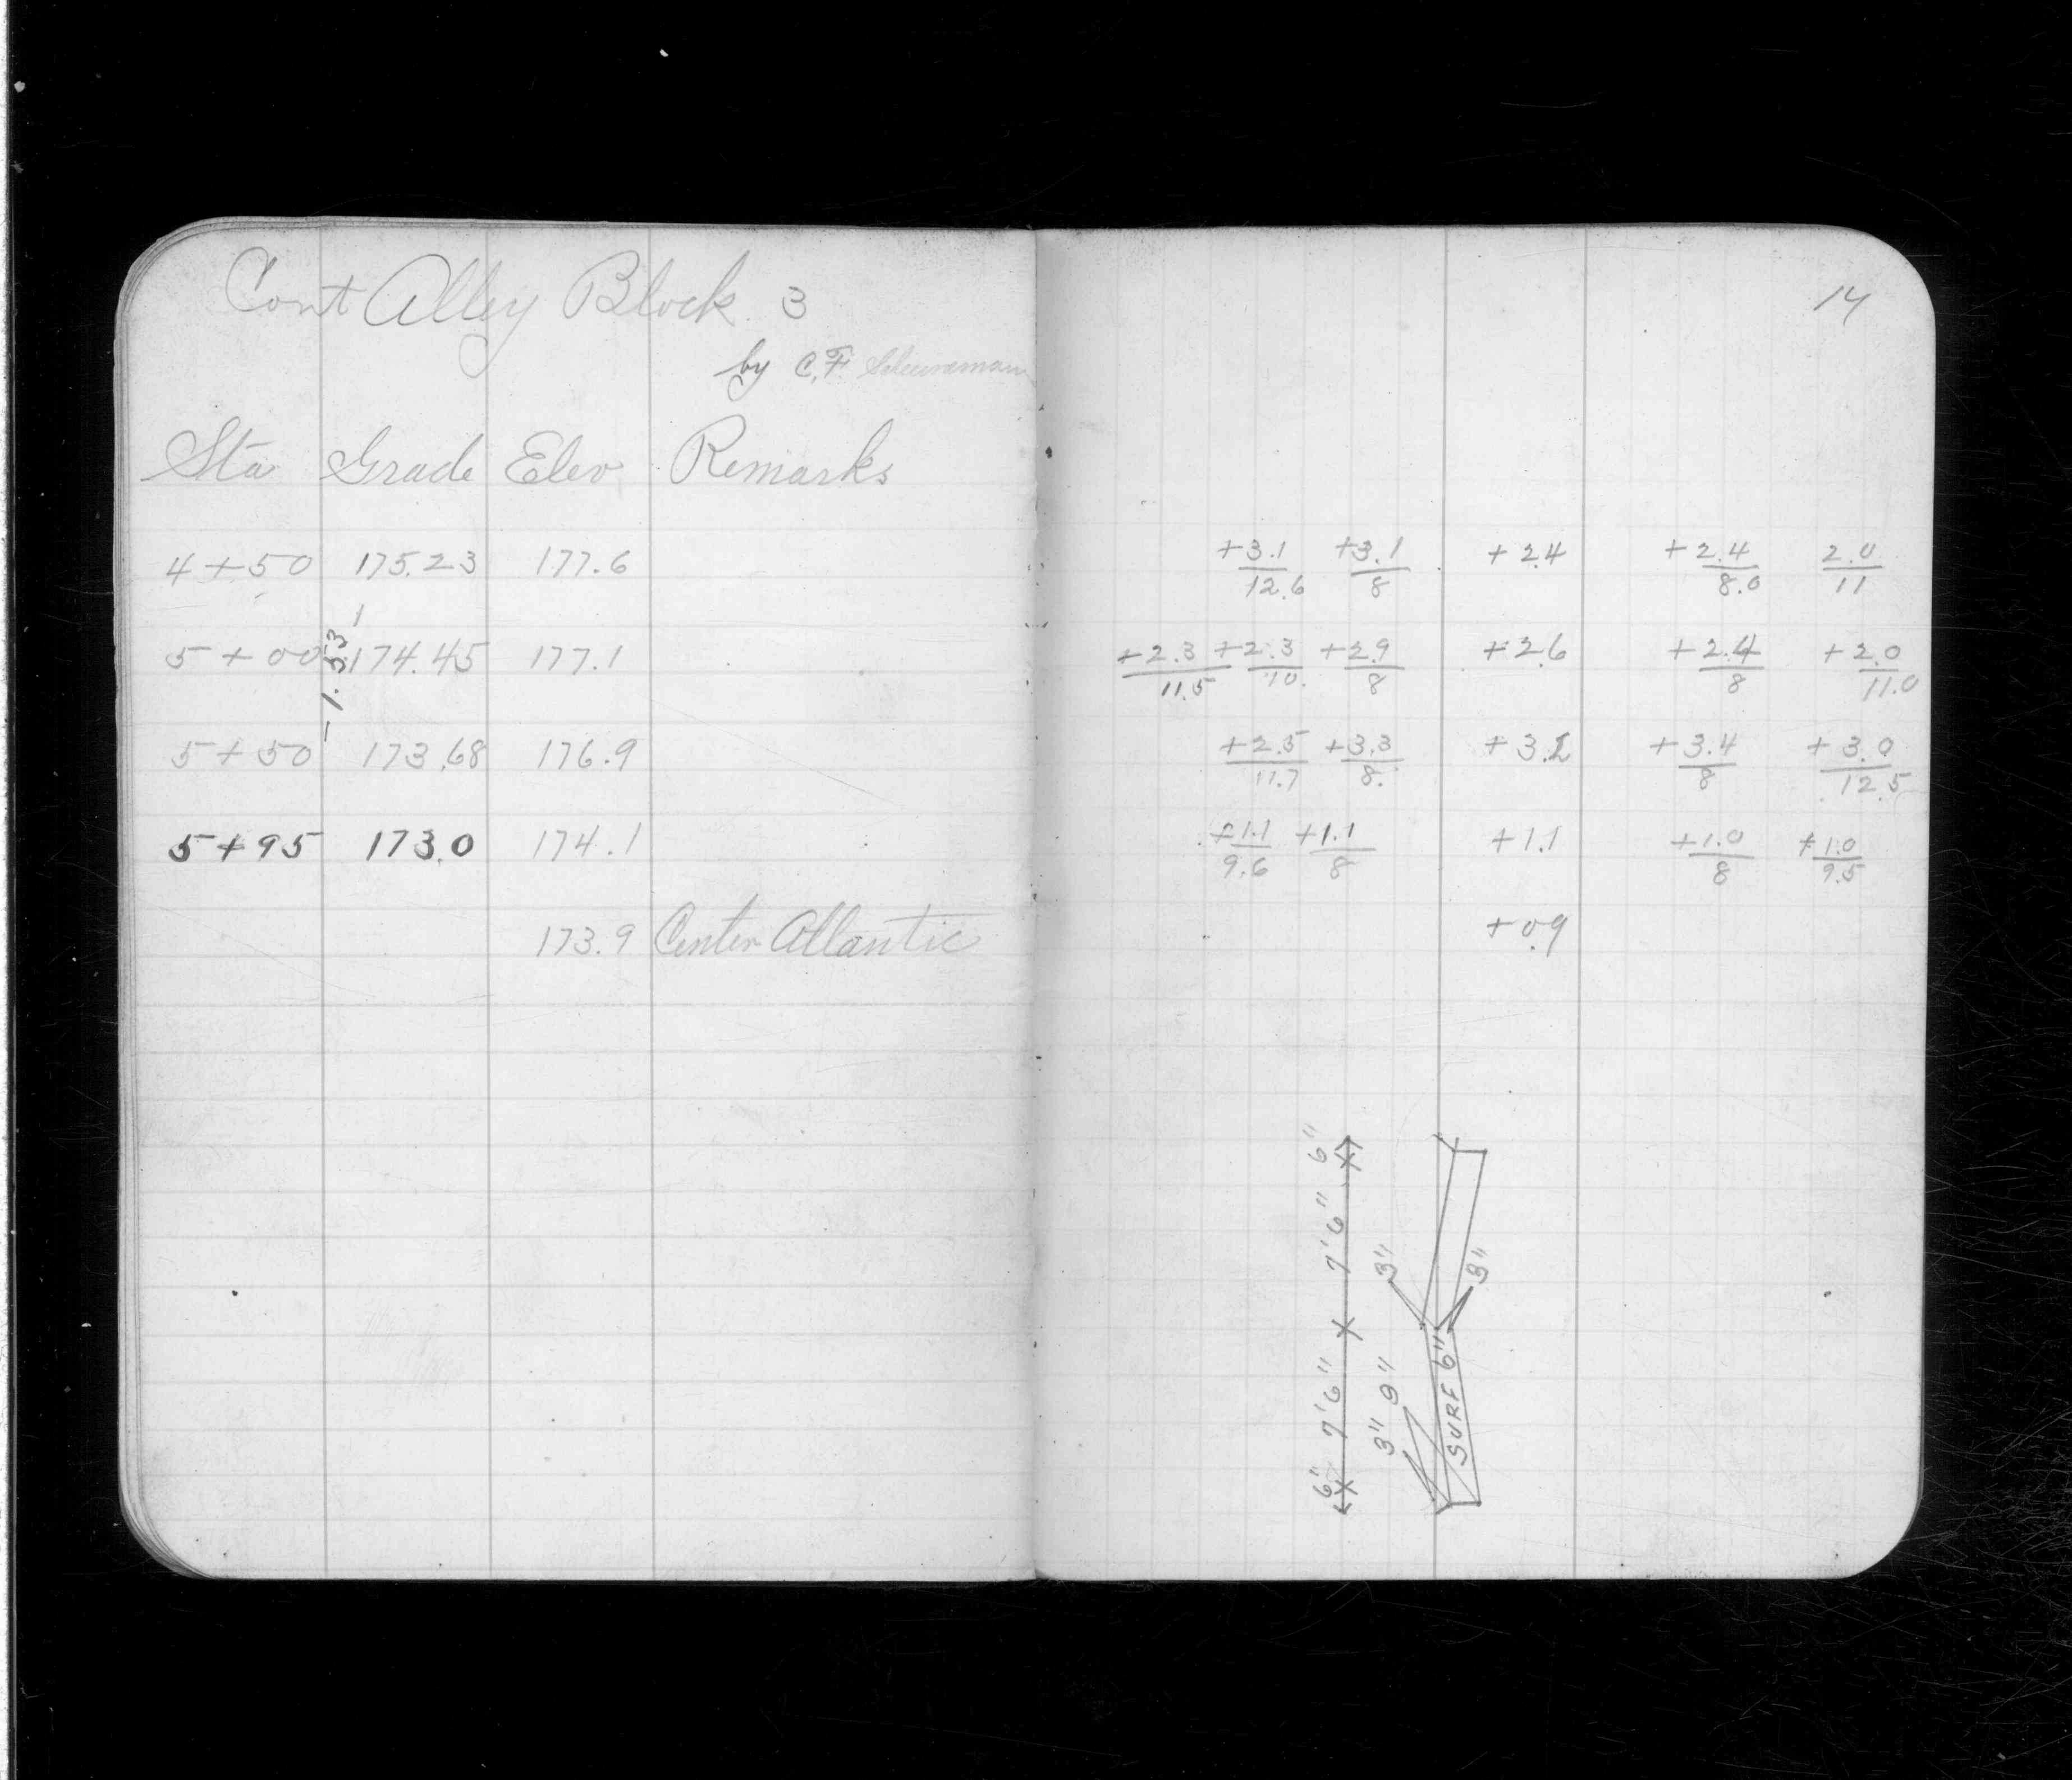 Cont Alley Block 3
by C.F.
Sta Grade Elev Remarks
4+50 175.23 177.6
5+00 174.45 177.1
-1.55%
5+50 173.68 176.9
5+95 173.0 174.1
173.9 Center Atlantic
14
+3.1/12.6 +3.1/8 +2.4 +2.4/8.0 2.0/11
+2.3/11.5 +2.3/10. +2.9/8 +2.6 +2.4/8 +2.0/11.0
+2.5/11.7 +3.3/8. +3.2 +3.4/8 +3.0/12.5
+1.1/9.6 +1.1/8 +1.1 +1.0/8 +1.0/9.5
+0.9
6" 7'6" 7'6" 6"
3" 9" 3"
SURF 6" 3"